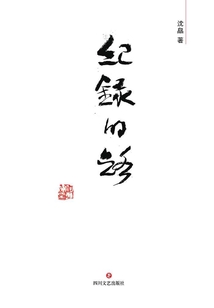 沈晶 著
纪录的路
四川文艺出版社